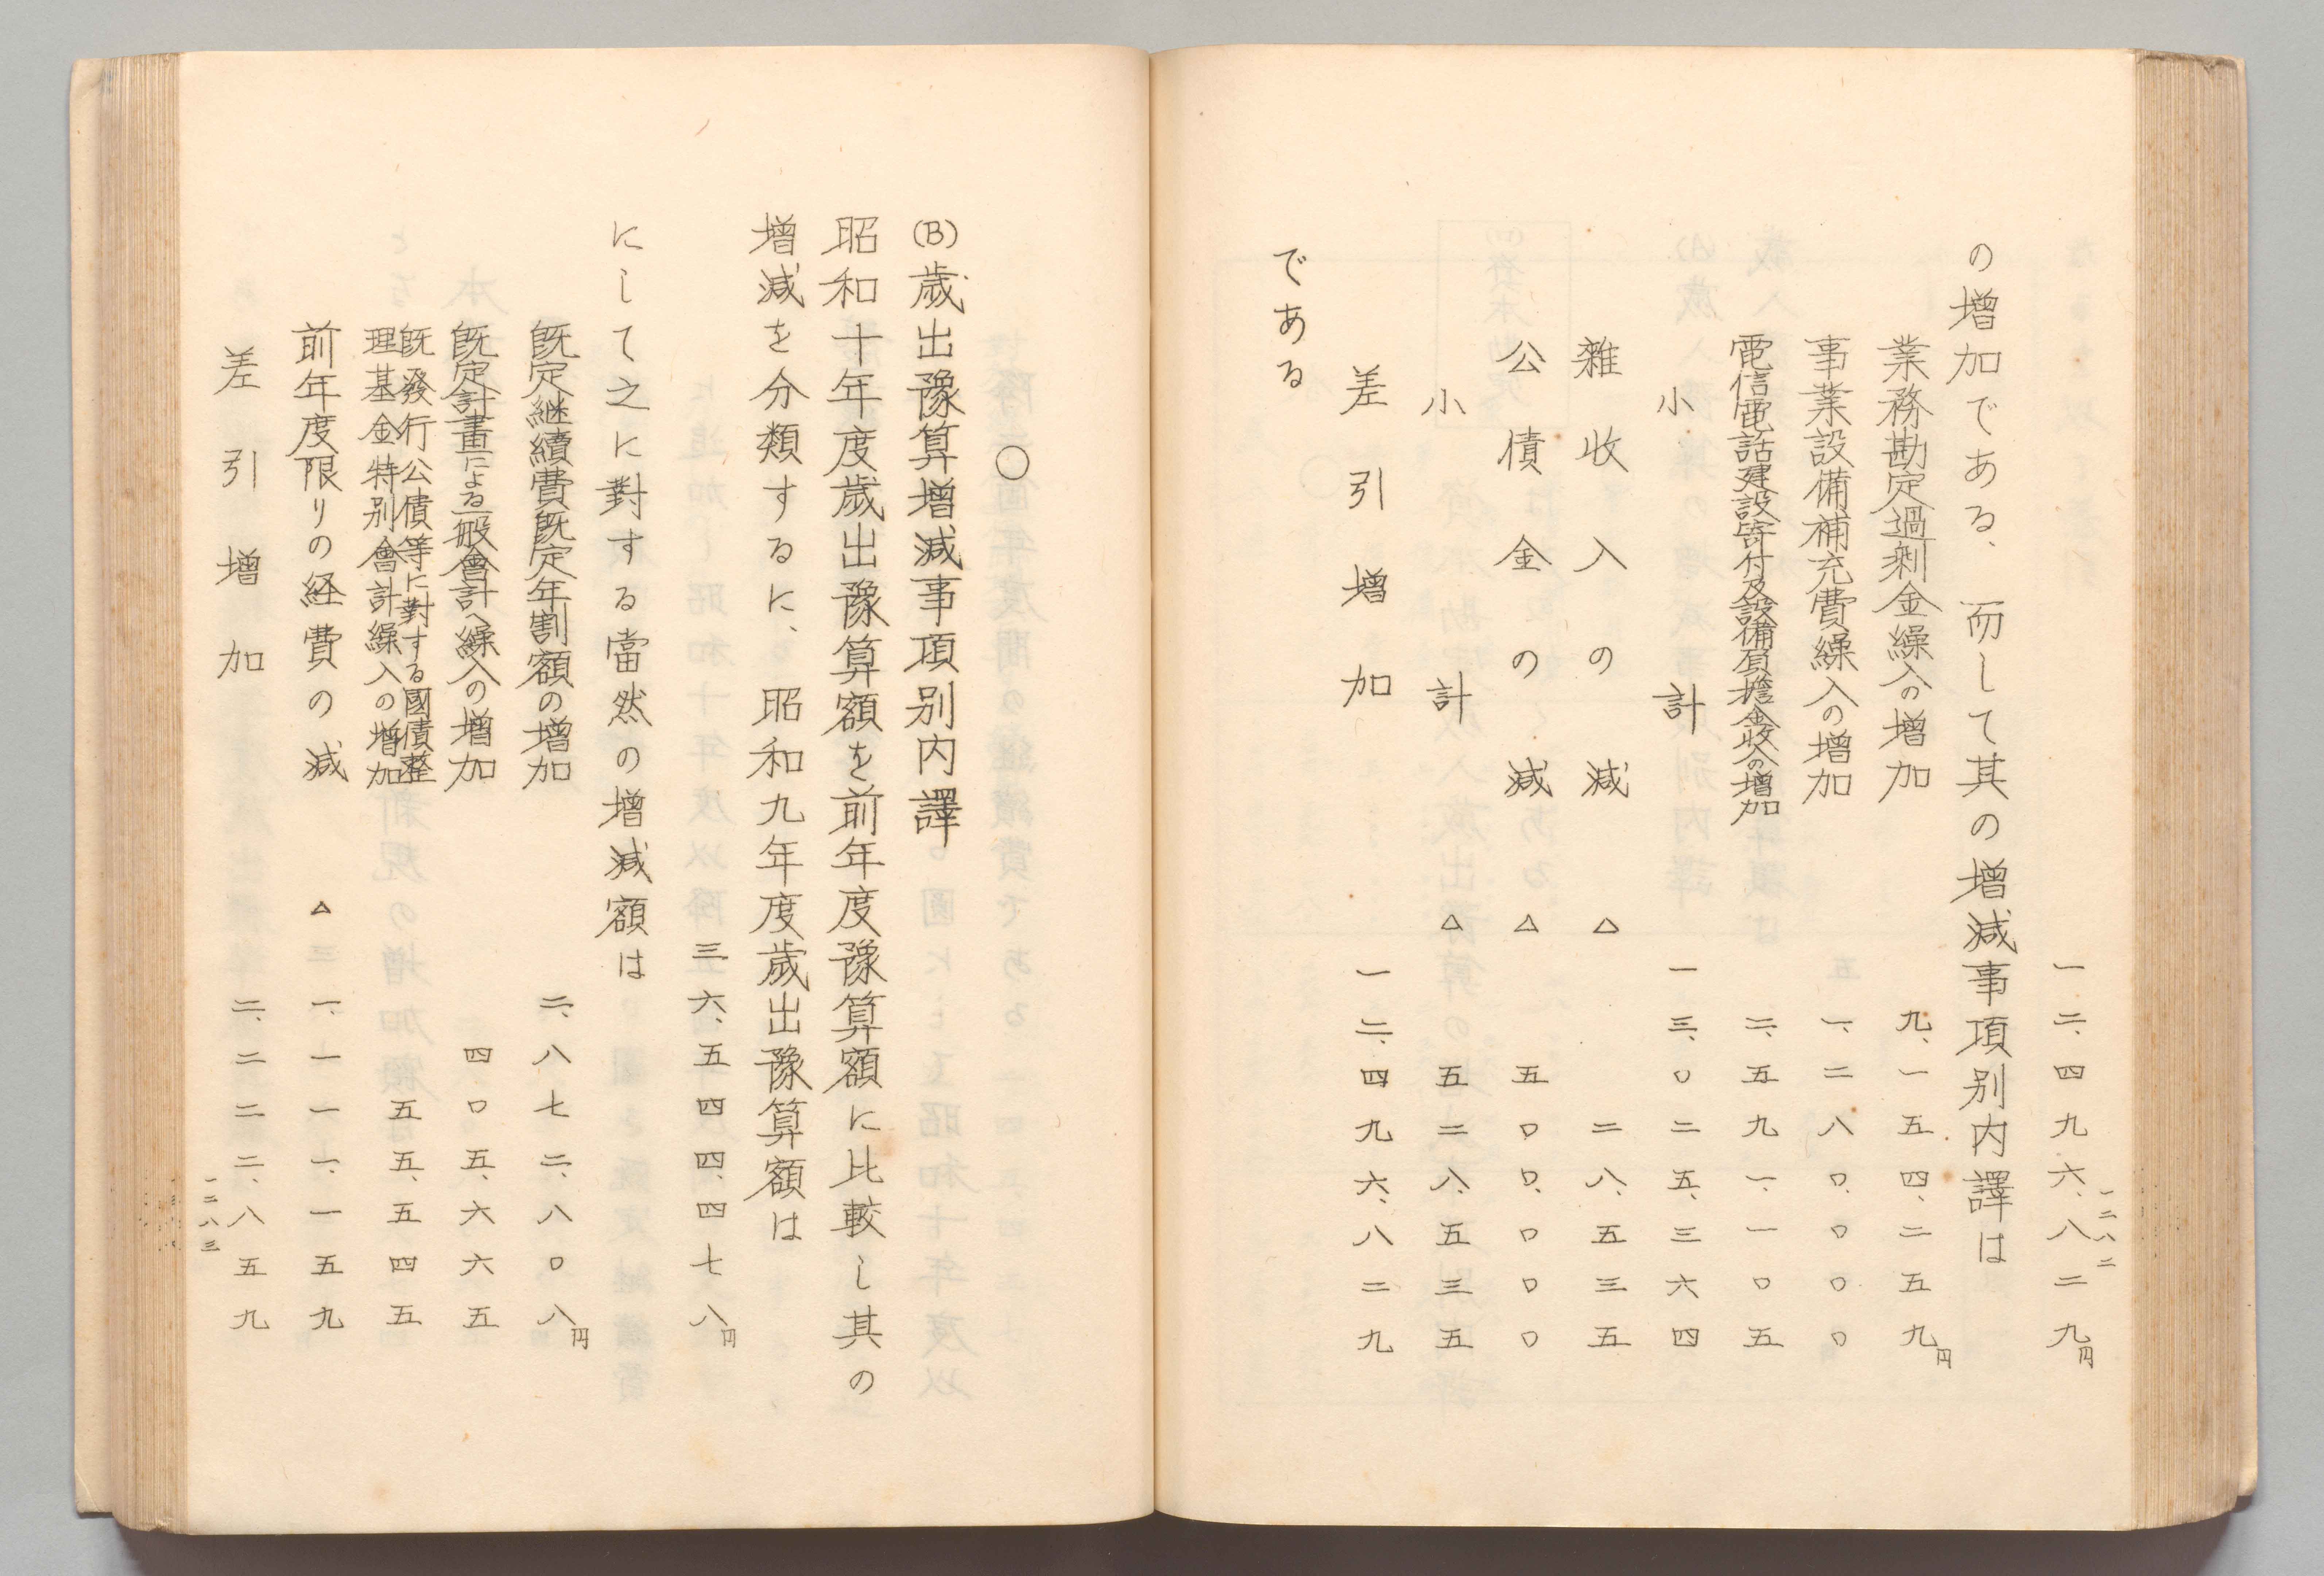 一二、四九六、八二九円
の増加である、而して其の増減事項別内譯は
業務勘定過剰金繰入の増加 九、一五四、二五九円
事業設備補充費繰入の増加 一、二八〇、〇〇〇
電信電話建設寄付及設備負擔金收入の増加 二、五九一、一〇五
小計 一三、〇二五、三六四
雜收入の減 △ 二八、五三五
公債金の減 △ 五〇〇、〇〇〇
小計 △ 五二八、五三五
差引増加 一二、四九六、八二九
である
一二八二
〇
(B)歳出豫算増減事項別内譯
昭和十年度歳出豫算額を前年度豫算額に比較し其の
増減を分類するに、昭和九年度歳出豫算額は
三六、五四四、四七八円
にして之に對する當然の増減額は
既定継續費既定年割額の増加 二、八七二、八〇八円
既定計畫による一般會計へ繰入の増加 四〇五、六六五
既發行公債等に對する國債整
理基金特別會計繰入の増加 五五、五四五
前年度限りの経費の減 △ 一、一一一、一五九
差引増加 二、二二二、八五九
一二八三